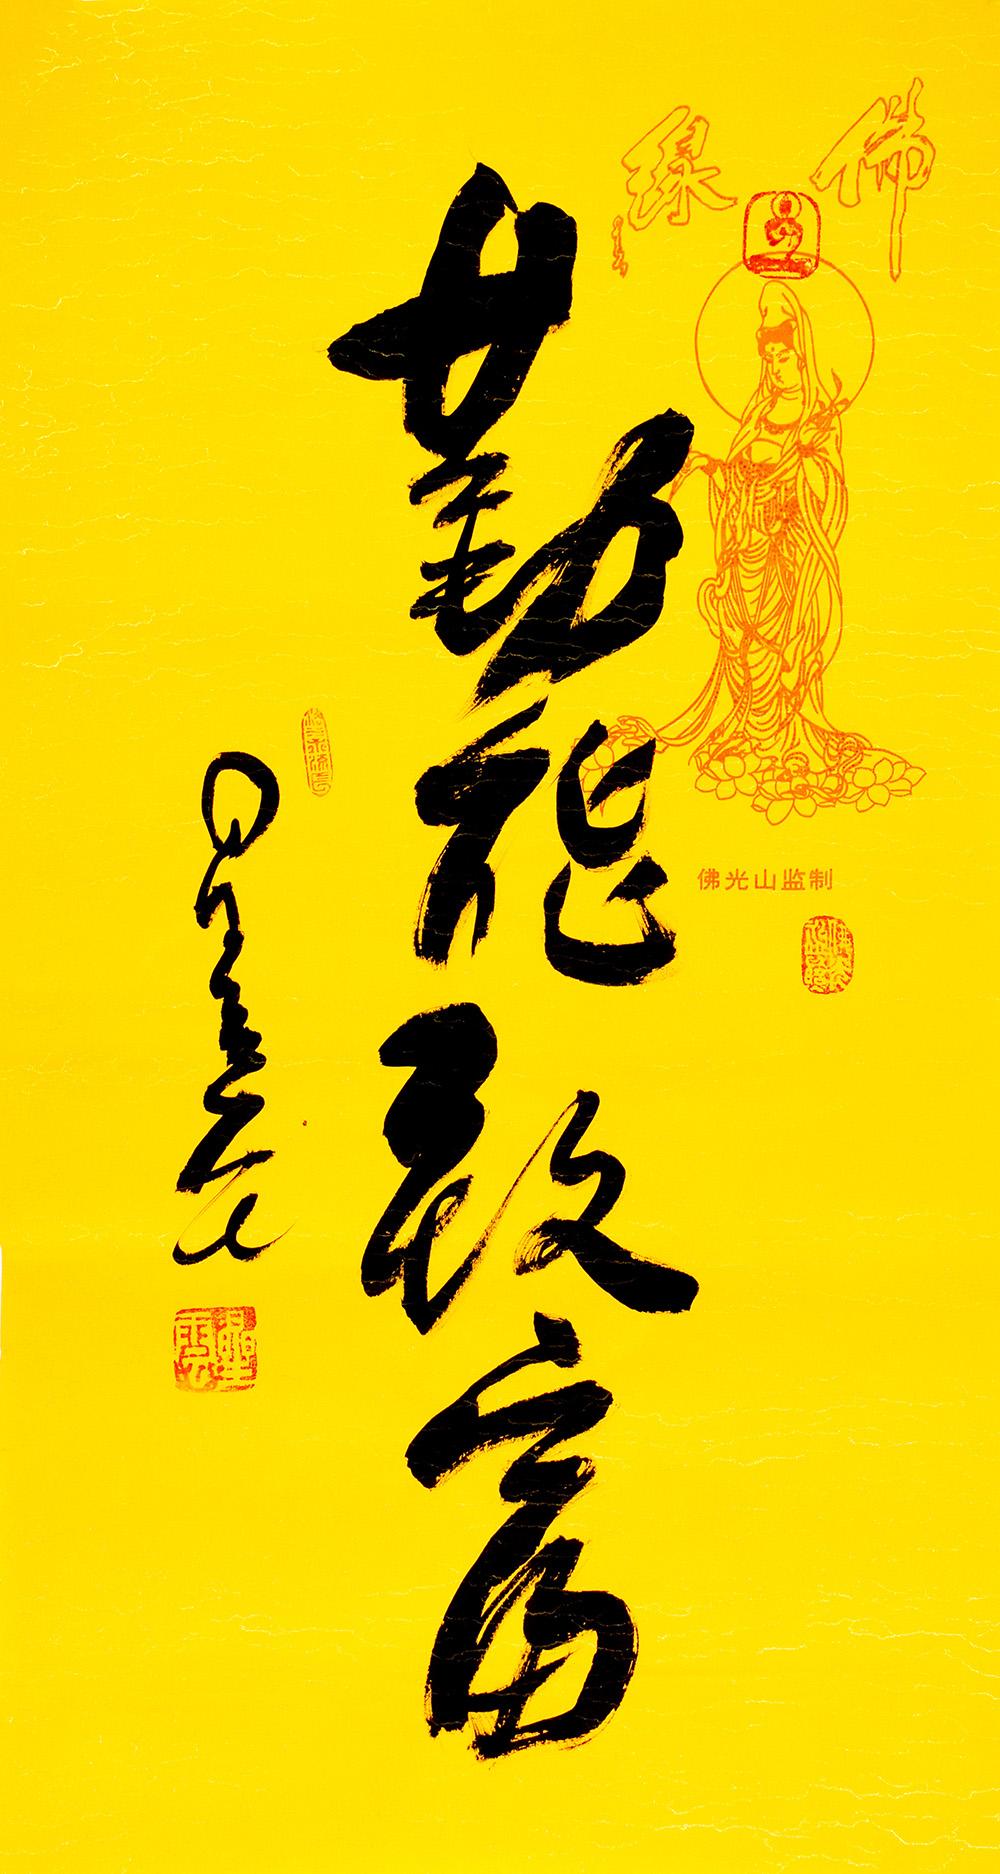 佛緣
佛光山监制
勤能致富
星雲